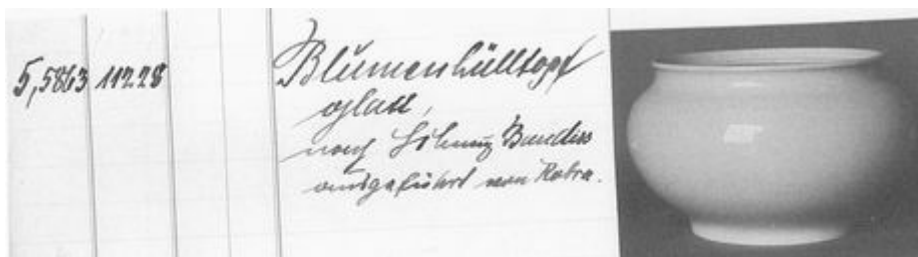 5,5863 11228
Blumenhülltopf
glatt,
nach Zeichnung Baudiss
ausgeführt von Kobra.